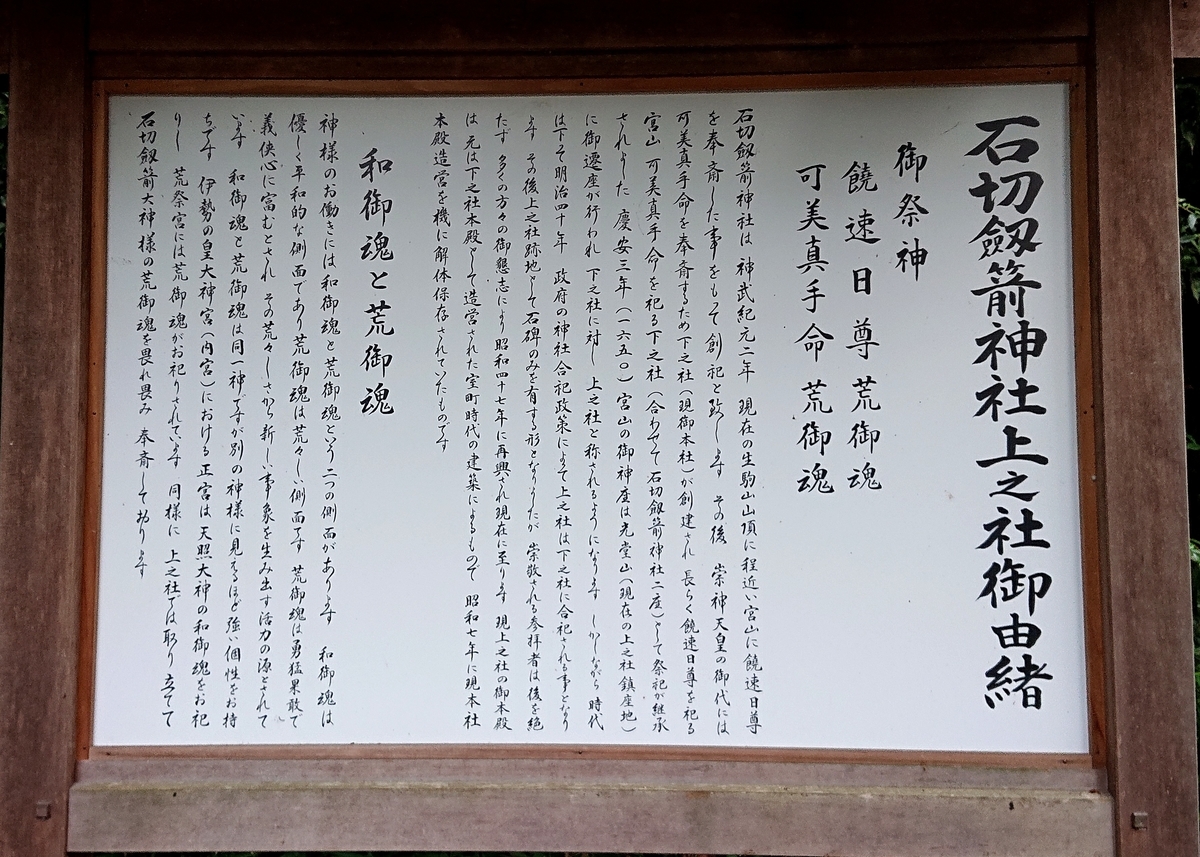 石切劔箭神社上之社御由緒
御祭神
饒速日尊 荒御魂
可美真手命 荒御魂
石切劔箭神社は 神武紀元二年 現在の生駒山山頂に程近い宮山に饒速日尊
を奉斎した事をもって創祀と致します その後 崇神天皇の御代には
可美真手命を奉斎するため下之社(現御本社)が創建され 長らく饒速日尊を祀る
宮山 可美真手命を祀る下之社(合わせて石切劔箭神社二座)として祭祀が継承
されました 慶安三年(一六五〇)宮山の御神座は光堂山(現在の上之社鎮座地)
に御遷座が行われ 下之社に対し 上之社と称されるようになります しかしながら 時代
は下って明治四十年 政府の神社合祀政策によって上之社は下之社に合祀される事となり
ます その後上之社跡地として石碑のみを有する形となりましたが 崇敬される参拝者は後を絶
たず 多くの方々の御懇志により 昭和四十七年に再興され現在に至ります 現上之社の御本殿
は 元は下之社本殿として造営された室町時代の建築によるもので 昭和七年に現本社
本殿造営を機に解体保存されていたものです
和御魂と荒御魂
神様のお働きには 和御魂と荒御魂という二つの側面があります 和御魂は
優しく平和的な側面であり 荒御魂は荒々しい側面です 荒御魂は勇猛果敢で
義侠心に富むとされ その荒々しさから新しい事象を生み出す活力の源とされて
います 和御魂と荒御魂は同一神ですが別の神様に見えるほど強い個性をお持
ちです 伊勢の皇大神宮(内宮)における正宮は 天照大神の和御魂をお祀
りし 荒祭宮には荒御魂がお祀りされています 同様に 上之社では取り立てて
石切劔箭大神様の荒御魂を畏れ畏み 奉斎しております